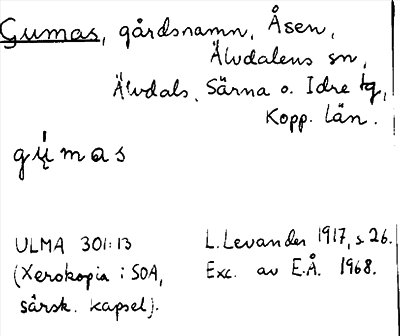 Gumas, gårdsnamn, Åsen,
Älvdalens sn,
Älvdals, Särna o. Idre tg,
Kopp. län.
ULMA 301:13
(Xerokopia i SOA,
särsk. kapsel).
L. Levander 1917, s. 26.
Exc. av E.Å. 1968.